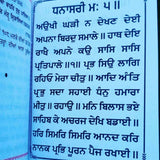 ਧਨਾਸਰੀ ਮਃ ੫॥
ਅਉਖੀ ਘੜੀ ਨ ਦੇਖਣ ਦੇਈ
ਅਪਨਾ ਬਿਰਦੁ ਸਮਾਲੇ॥ ਹਾਥ ਦੇਇ
ਰਾਖੈ ਅਪਨੇ ਕਉ ਸਾਸਿ ਸਾਸਿ
ਪ੍ਰਤਿਪਾਲੇ॥੧॥ ਪ੍ਰਭ ਸਿਉ ਲਾਗਿ
ਰਹਿਓ ਮੇਰਾ ਚੀਤੁ॥ ਆਦਿ ਅੰਤਿ
ਪ੍ਰਭੁ ਸਦਾ ਸਹਾਈ ਧੰਨੁ ਹਮਾਰਾ
ਮੀਤੁ॥ ਰਹਾਉ॥ ਮਨਿ ਬਿਲਾਸ ਭਏ
ਸਾਹਿਬ ਕੇ ਅਚਰਜ ਦੇਖਿ ਬਡਾਈ॥
ਹਰਿ ਸਿਮਰਿ ਸਿਮਰਿ ਆਨਦ ਕਰਿ
ਨਾਨਕ ਪ੍ਰਭਿ ਪੂਰਨ ਪੈਜ ਰਖਾਈ॥